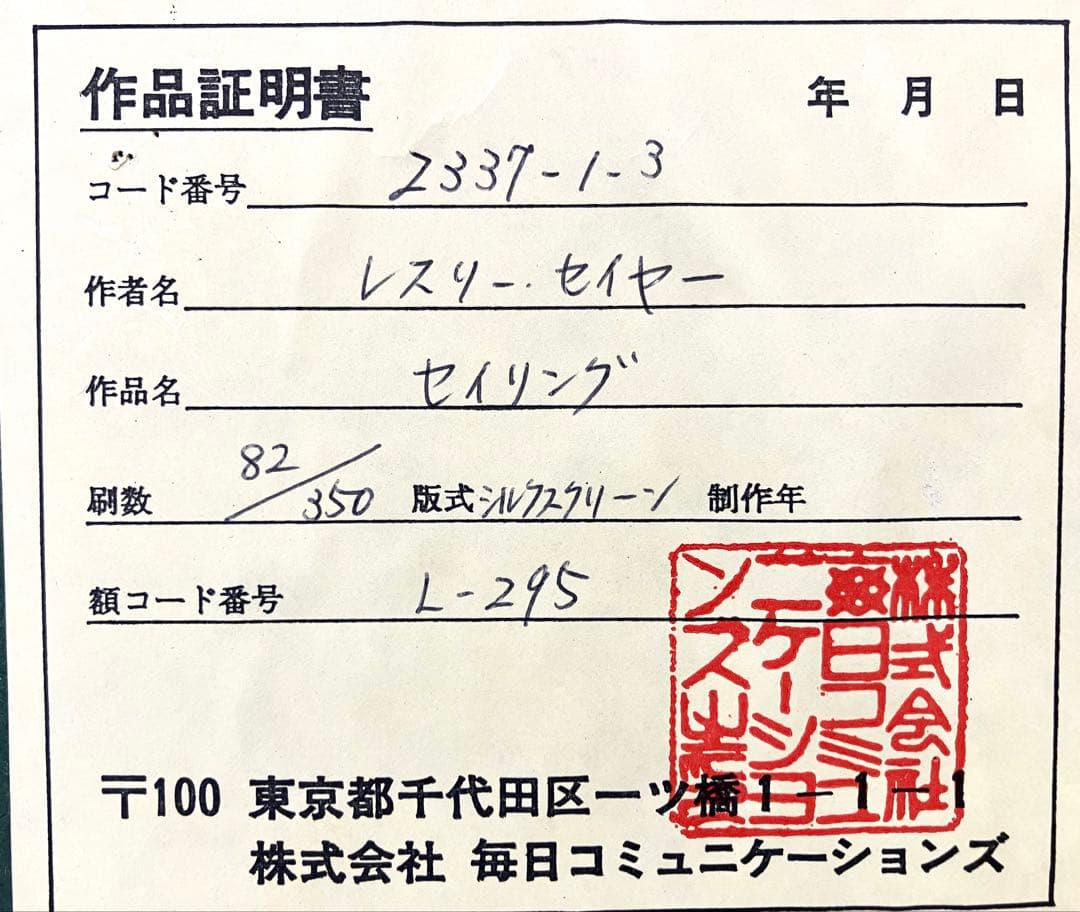 作品証明書 年 月 日
コード番号 2337-1-3
作者名 レスリー・セイヤー
作品名 セイリング
刷数 82/350 版式 シルクスクリーン 制作年
額コード番号 L-295
株式会社
毎日コミュ
ニケーショ
ンズ
〒100 東京都千代田区一ツ橋1-1-1
株式会社 毎日コミュニケーションズ